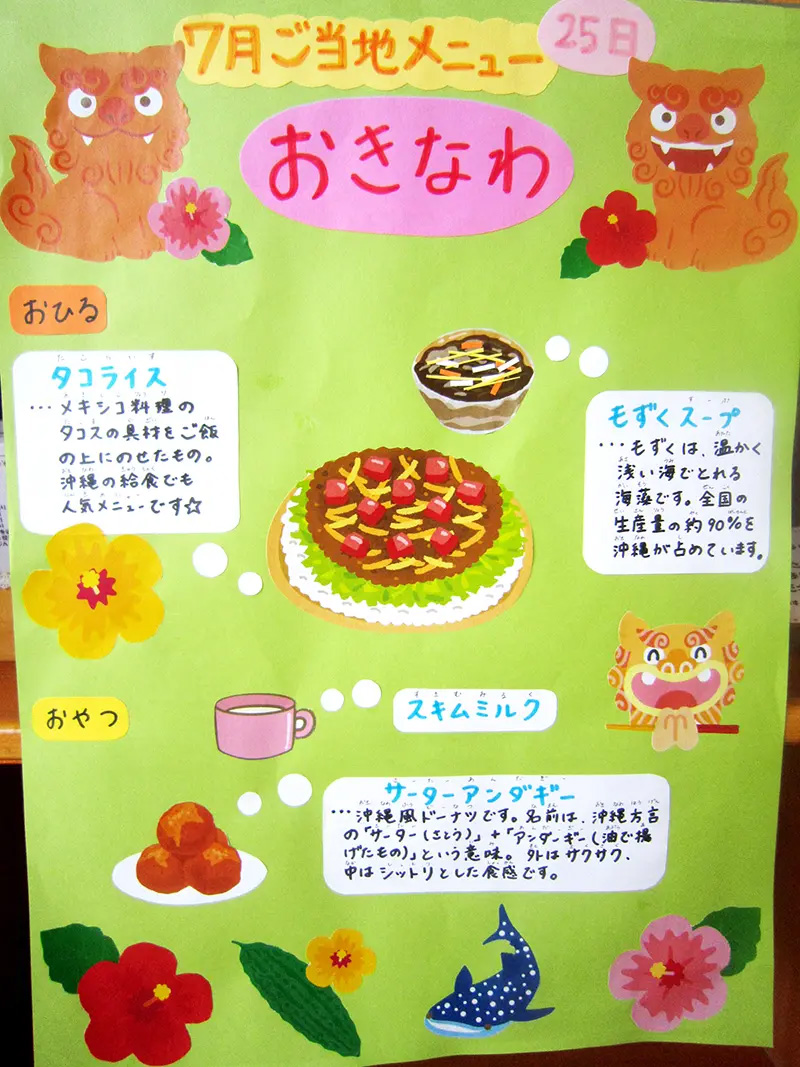 7月ご当地メニュー
25日
おきなわ
おひる
たこらいす
タコライス
…メキシコ料理の
タコスの具材をご飯
の上にのせたもの。
沖縄の給食でも
人気メニューです☆
もずくスープ
…もずくは、温かく
浅い海でとれる
海藻です。全国の
生産量の約90%を
沖縄が占めています。
おやつ
すきむみるく
スキムミルク
サーターアンダギー
…沖縄風ドーナツです。名前は、沖縄方言
の「サーター(さとう)」+「アンダーギー(油で揚
げたもの)」という意味。外はサクサク、
中はシットリとした食感です。